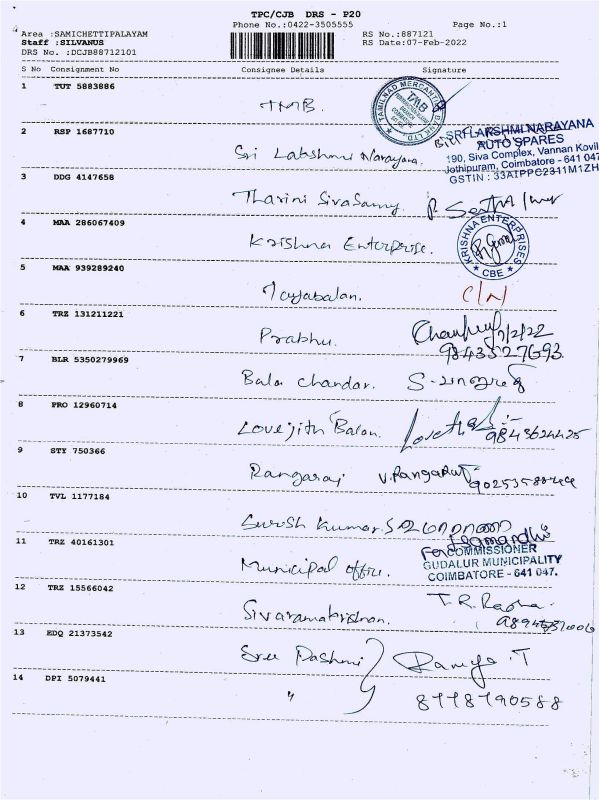 TPC/CJB DRS - P20
Phone No.:0422-3505555 Page No.:1
Area :SAMICHETTIPALAYAM RS No.:887121
Staff :SILVANUS RS Date:07-Feb-2022
DRS No. :DCJB88712101
S No Consignment No Consignee Details Signature
1 TUT 5883886
TMB.
TAMILNAD MERCANTILE BANK LTD.
TMB
2 RSP 1687710
SRI LAKSHMI NARAYANA
AUTO SPARES
Sri Lakshmi Narayana.
190, Siva Complex, Vannan Kovil
Jothipuram, Coimbatore - 641 047
GSTIN : 33AIPPC2311M1ZH
3 DDG 4147658
Tharini Sivasamy P.
4 MAA 286067409
Krishna Enterprise.
KRISHNA ENTERPRISES
CBE
5 MAA 939289240
C/N
6 TRZ 131211221
Prabhu. 7/2/22
9843527693
7 BLR 5350279969
Bala chandar.
8 PRO 12960714
Lovejith Balan. 9843624425
9 STY 750366
Rangaraj V. Rangaraj
10 TVL 1177184
Suresh Kumar.
11 TRZ 40161301
For COMMISSIONER
GUDALUR MUNICIPALITY
COIMBATORE - 641 047.
Municipal office.
12 TRZ 15566042
Sivaramakrishnan. T.R.
13 EDQ 21373542
Sree Dashmi Ramya. T
14 DPI 5079441
" 8778790588